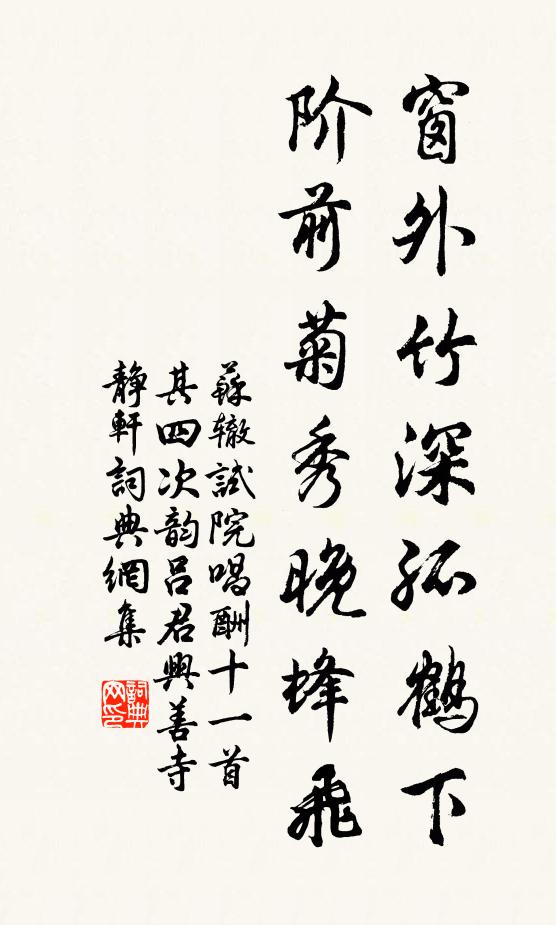 窗外竹深孤鹤下
阶前菊秀晚蜂飛
蘇辙試院唱酬十一首
其四次韵吕君興善寺
靜軒詞典網集
詞典
网印